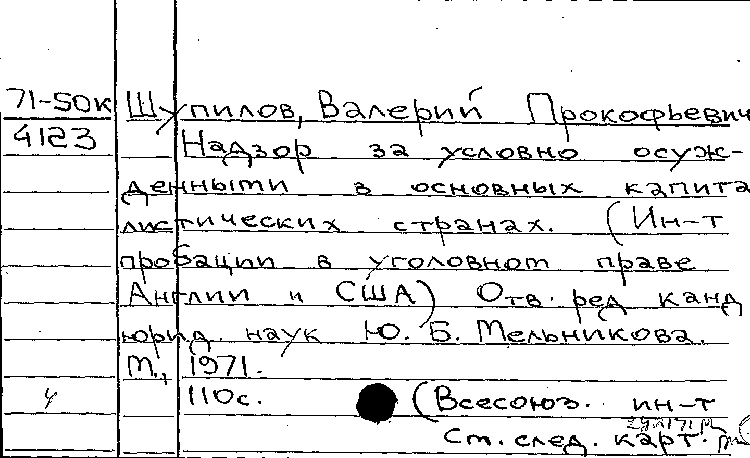 71-50к Шупилов, Валерий Прокофьевич
4123 Надзор за условно осуж-
денными в основных капита
листических странах. (Ин-т
пробации в уголовном праве
Англии и США) Отв. ред канд
юрид. наук Ю. Б. Мельникова.
М., 1971.
4 110с. (Всесоюз. ин-т
См. след. карт.